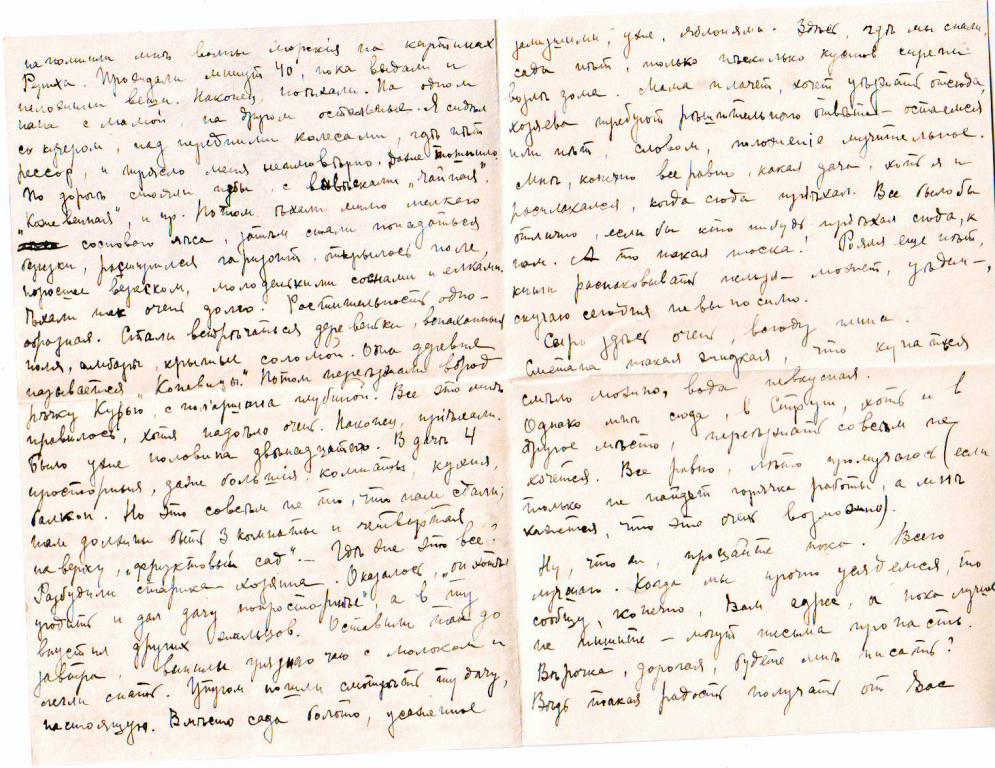 напомнили мнѣ волны морскія на картинахъ
Рунда. Прождали минутъ 40, пока выдали и
уложили вещи. Наконецъ, поѣхали. На одномъ
папа с мамой, на другом остальные. Я сидѣлъ
съ кучером, над передними колесами, гдѣ нѣтъ
рессор, и трясло меня неимовѣрно. Даже тошнило.
По дорогѣ стояли избы, с вывѣсками „Чайная",
„Казенная", и пр. Потом ѣхали мимо мелкаго
сосноваго лѣса, затѣм стали попадаться
березки, расширился горизонт, открылось поле,
поросшее верескомъ, молоденькими соснами и елками.
Ѣхали так очень долго. Растительность одно-
образная. Стали встрѣчаться деревеньки, вспаханныя
поля, амбары, крытые соломой. Одна деревня
называется „Коневицы". Потом переѣзжали вброд
рѣчку Курью, с пол-аршина глубиной. Все это мнѣ
нравилось, хотя надоѣло очень. Наконецъ, пріѣхали.
Было уже половина двѣнадцатаго. В дачѣ 4
просторныя, даже большія комнаты, кухня,
балкон. Но это совсѣм не то, что нам сдали;
там должны быть 3 комнаты и четвертая
на верху, „фруктовый сад". — Гдѣ же это все?
Разбудили старика хозяина. Оказалось, „он хотѣлъ
угодить и дал дачу попросторнѣе", а в ту
впустил других жильцов. Оставили так до
завтра, выпили чаю с молоком и
легли спать. Утром пошли смотрѣть ту дачу,
настоящую. Вмѣсто сада болото, усаженное
уже, яблонями. Здѣсь, гдѣ мы спали,
сада нѣтъ, только нѣсколько кустов сирени
возлѣ дома. Мама плачет, хочет уѣзжать отсюда,
хозяева требуют рѣшительного отвѣта — остаемся
или нѣтъ, словом, положеніе мучительное.
Мнѣ, конечно все равно, какая дача, хотя я и
расплакался, когда сюда пріѣхал. Все было бы
отлично, если бы кто нибудь пріѣхал сюда, к
нам. А то такая тоска! Рояля еще нѣтъ,
книги распаковывать нельзя — может, уѣдем —,
скучаю сегодня невыносимо.
Сыро здѣсь очень, всюду глина.
Сметана такая жидкая, что купаться
смѣло можно, вода невкусная.
Однако мнѣ сюда, в Струги, хоть и в
другое мѣсто, переѣзжать совсѣм не
хочется. Все равно, лѣто промучаюсь (если
только не найдет горячка работы, а мнѣ
кажется, что это очень возможно).
Ну, что ж, прощайте пока. Всего
лучшаго. Когда мы прочно усядемся, то
сообщу, конечно, Вам адрес, а пока лучше
не пишите — могут письма пропасть.
Вѣрочка, дорогая, будете мнѣ писать?
Вѣдь такая радость получать от Вас